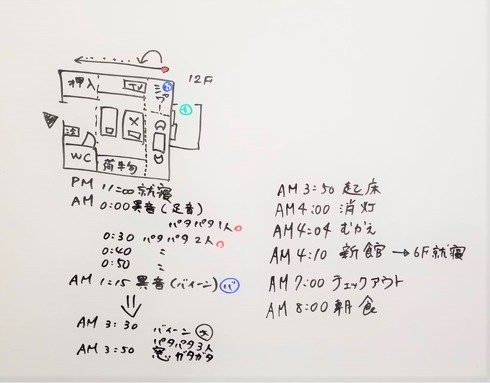 12F
押入
TV
バ
WC
PM 11:00 就寝
AM 0:00 異音(足音)
パタパタ1人
0:30 パタパタ2人
0:40 〃
0:50 〃
AM 1:15 異音(バイーン) バ
AM 3:30 バイーン 大
パタパタ3人
AM 3:50 窓 ガタガタ
AM 3:50 起床
AM 4:00 消灯
AM 4:04 むかえ
AM 4:10 新館 → 6F就寝
AM 7:00 チェックアウト
AM 8:00 朝食